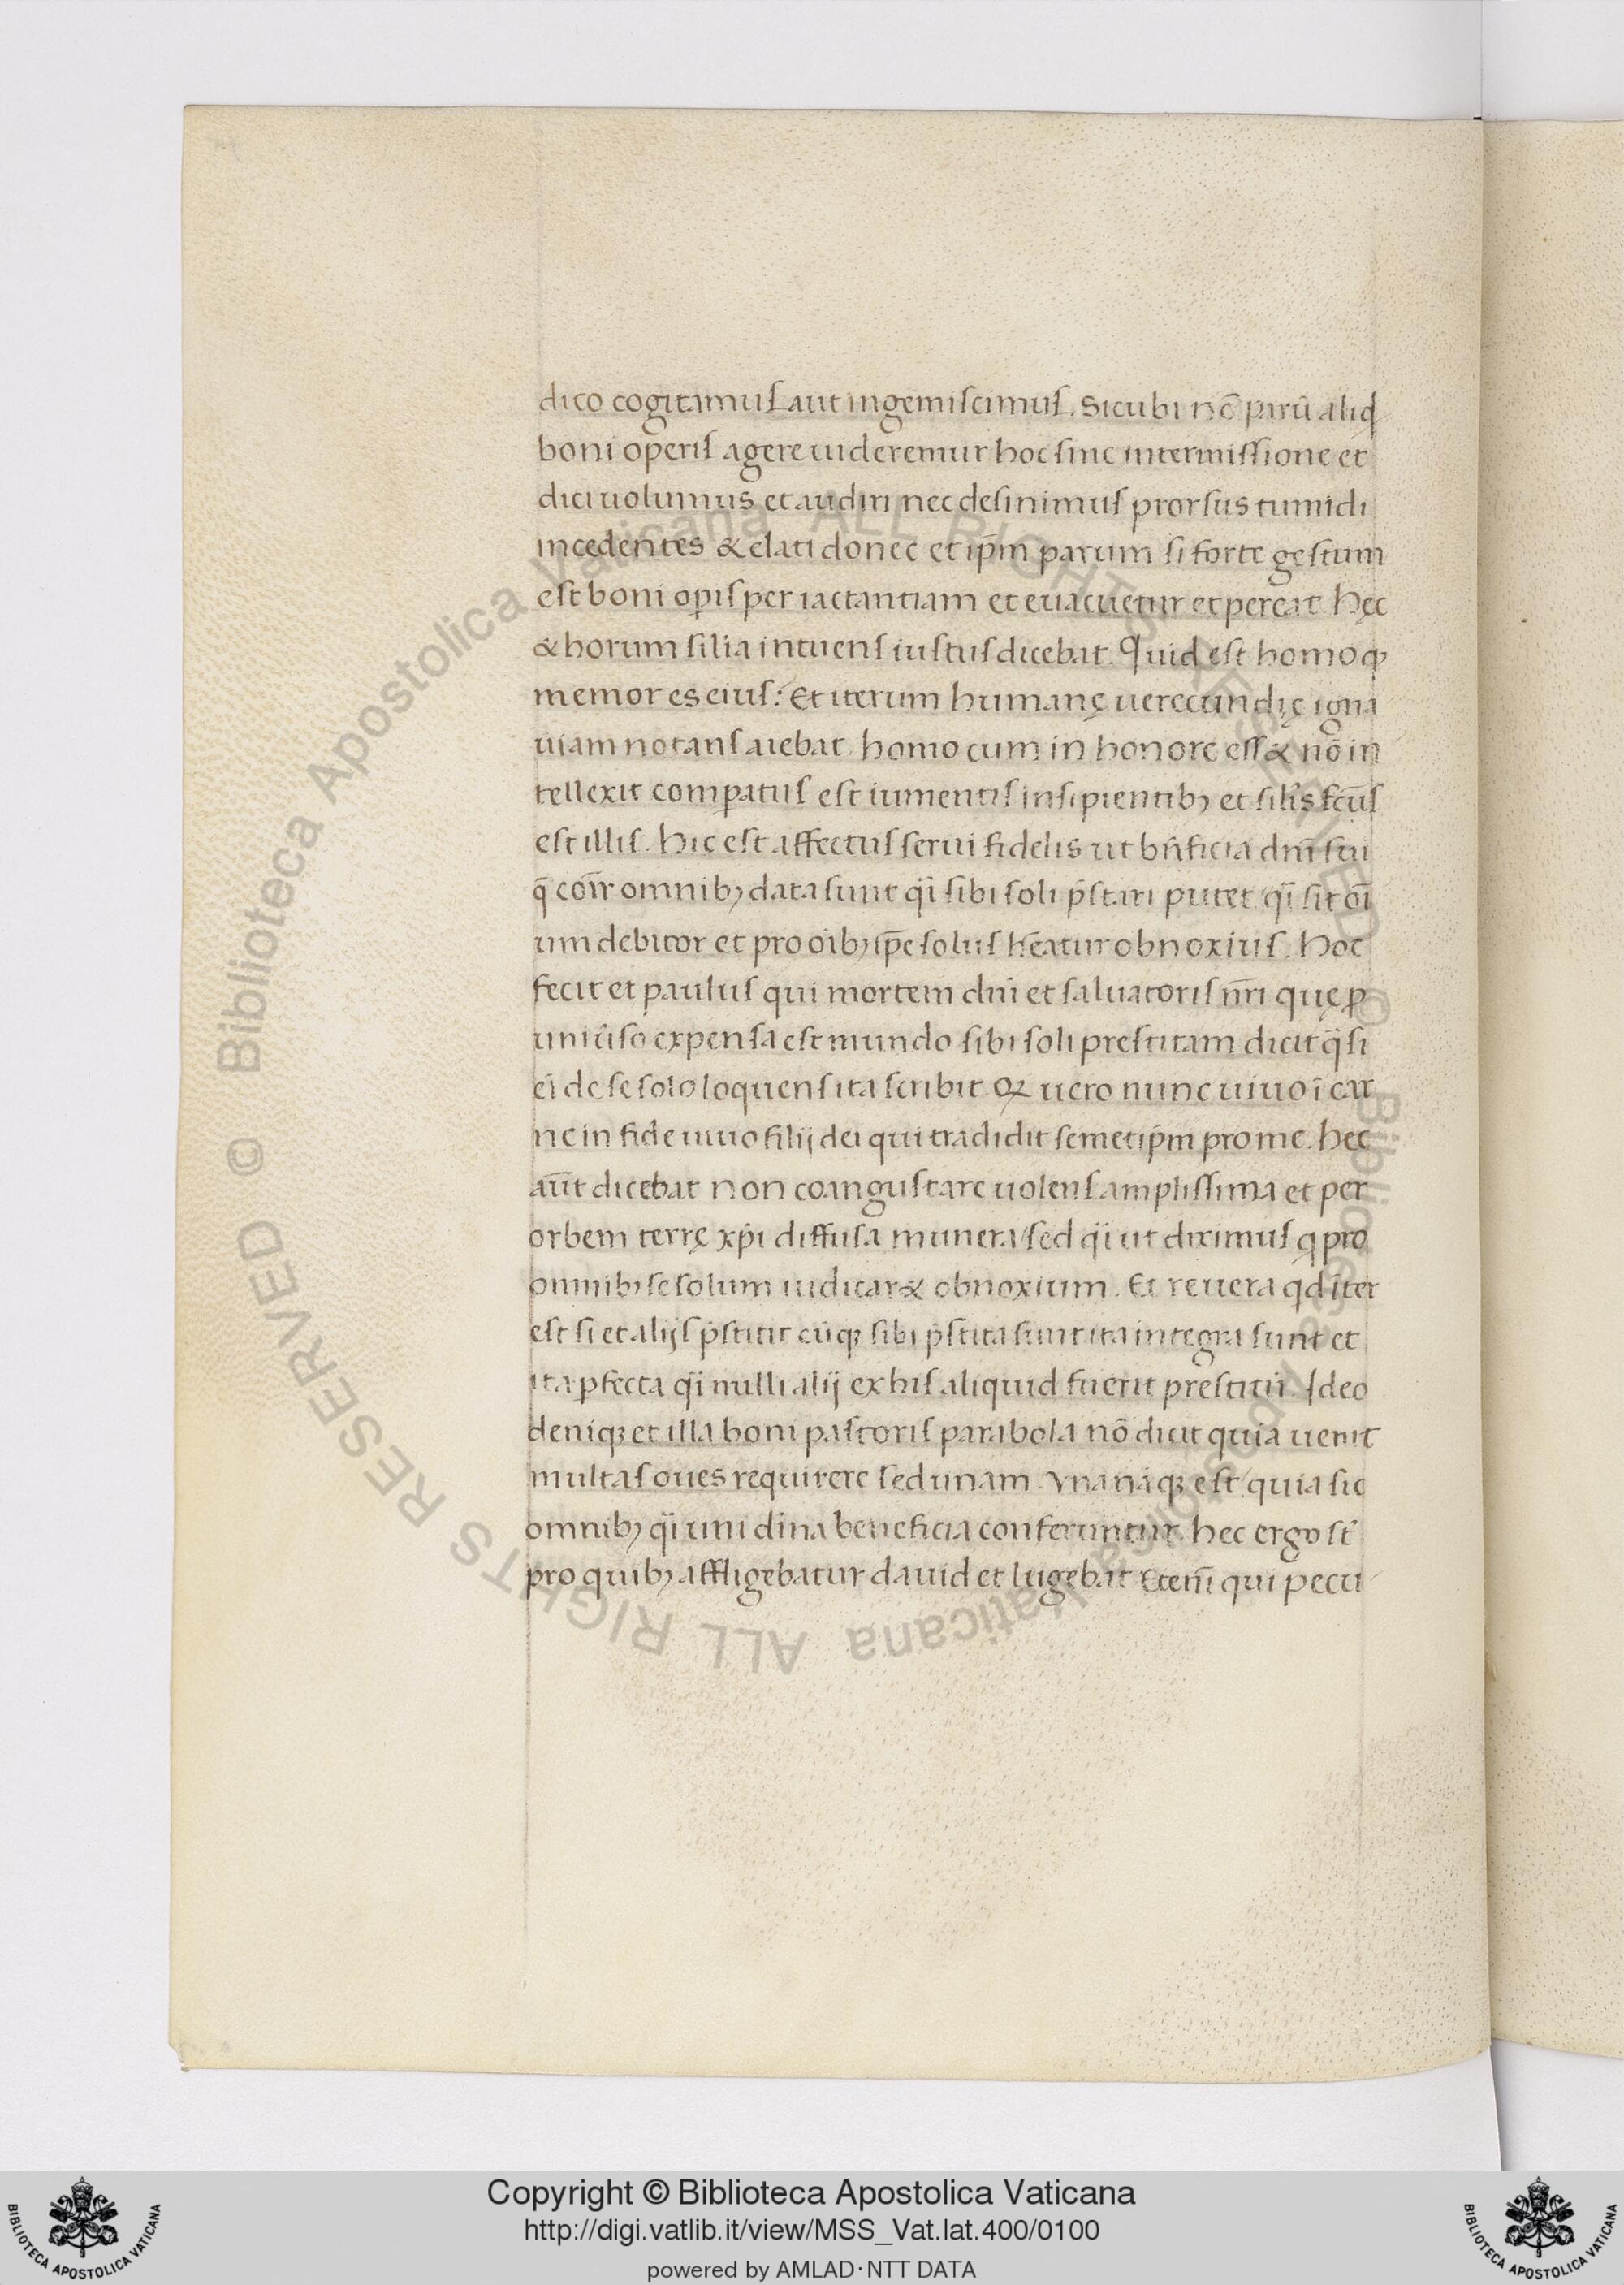 dico cogitamuſ aut ingemiſcimuſ. Sicubi nō parū aliqͥd
boni operiſ agere uideremur hoc ſine intermiſſione et
dici uolumus et audiri nec deſinimuſ prorſus tumidi
incedentes & elati donec et ip̄m parum ſi forte geſtum
eſt boni oꝑiſ per iactantiam et euacuetur et pereat. hęc
& horum ſilia intuenſ iuſtuſ dicebat. Quid eſt homo ꝙ
memor es eiuſ: Et iterum humanę uerecundię igna
uiam notanſ aiebat. homo cum in honore eſſ& nō in
tellexit comꝑatuſ eſt iumentiſ inſipientibꝫ et ſilīs fc̄uſ
eſt illiſ. hic eſt affectuſ ſerui fidelis ut bn̄ficia dn̄i ſui
q̄ coīr omnibꝫ data ſunt qͣi ſibi ſoli p̄ſtari putet qͣi ſit oī
um debitor et pro oībꝫ ip̄e ſoluſ h̄eatur obnoxiuſ. hoc
fecit et pauluſ qui mortem dn̄i et ſaluatoriſ nr̄i quę ꝑ
uniu̾ſo expenſa eſt mundo ſibi ſoli preſtitam dicit qͣſi
ei de ſe ſolo loquenſ ita ſcribit. Qꝫ uero nunc uiuo ī car
ne in fide uiuo filij dei qui tradidit ſemetip̄m pro me. hec
aūt dicebat non coanguſtare uolenſ ampliſſima et per
orbem terrę xp̄i diffuſa munera/ſed qͣi ut diximuſ q pro
omnibꝫ ſe ſolum iudicar& obnoxium. Et reuera qd īter
eſt ſi et alijſ p̄ſtitit cū qꝫ ſibi p̄ſtita ſunt ita integra ſunt et
ita ꝑfecta qͣi nulli alij ex hiſ aliquid fuerit preſtitū. Ideo
deniqꝫ et illa boni paſtoriſ parabola nō dicit quia uenit
multaſ oues requirere ſed unam. Vna nāqꝫ eſt/quia ſic
omnibꝫ qͣi uni diīna beneficia conferuntur. hec ergo ſt̄
pro quibꝫ affligebatur dauid et lugebat Etenī qui pecu
Copyright © Biblioteca Apostolica Vaticana
http://digi.vatlib.it/view/MSS_Vat.lat.400/0100
powered by AMLAD·NTT DATA
BIBLIOTECA APOSTOLICA VATICANA
BIBLIOTECA APOSTOLICA VATICANA
© Biblioteca Apostolica Vaticana ALL RIGHTS RESERVED
© Biblioteca Apostolica Vaticana ALL RIGHTS RESERVED